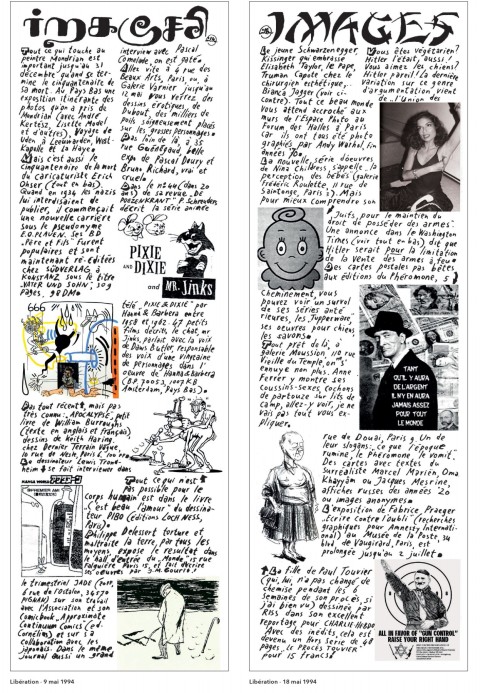 IMAGES
Tout ce qui touche au
peintre Mondrian est
important jusqu'au 31
décembre quand se ter-
mine le cinquantenaire de
sa mort. Au Pays Bas une
exposition itinérante des
photos qu'on a pris de
Mondrian (avec André
Kertész, Lisette Model
et d'autres). Voyage de
Uden à Leeuwarden, West-
Capelle et La Haye.
Mais c'est aussi le
cinquantenaire de la mort
du caricaturiste Erich
Ohser (tout en bas).
Quand en 1934 les nazis
lui interdisaient de
publier, il commençait
une nouvelle carrière
sous le pseudonyme
E.O.PLAUEN. Ses BD
"Père et Fils" furent
populaires et sont
maintenant ré-éditées
chez SÜDVERLAG à
KONSTANZ sous le titre
VATER UND SOHN, 109
pages, 98 DM.
666
Pas tout récent, mais pas
très connu: APOCALYPSE, petit
livre de William Burroughs
(texte en anglais et français)
dessins de Keith Haring.
chez Dernier Terrain Vague
10 rue de Nesle, Paris 6, 100
Le dessinateur Lewis Trond-
heim se fait interviewer dans
le trimestriel JADE
6 rue de l'ostalon, 34570
PIGNAN) sur son travail
avec l'Association et son
Comicbook, Approximate
Continuum Comics (ed.
Cornélius) et sur sa
collaboration avec les
japonais. Dans le même
journal aussi un grand
interview avec Pascal
Comelade, on est gâté.
Allez vite à 6 rue des
Beaux Arts, Paris 6, à
Galerie Varnier jusqu'au
12 mai. Vous verrez des
dessins érotiques, de
Dubout, des milliers de
poils soigneusement placés
sur les grosses personnages
Pas loin de là, à 35
rue Guénégaud, belle
expo de Pascal Doury et
Bruno Richard, vrai et
cruel.
Dans le n°
de sa revue DE
POEZENKRANT P. Schreuders
décrit la série animée
PIXIE
AND DIXIE
AND MR. JINKS
télé "PIXIE & DIXIE" par
Hanna & Barbera entre
1958 et 1962. 47 petits
films décrits, le chat, mr
Jinks, parlait avec la voix
de Daws Butler, responsable
des voix d'une vingtaine
de personnages dans l'
oeuvre de Hanna & Barbera
(B.P. 70053, 1007 KB
Amsterdam, Pays Bas).
Tout ce qui n'est
pas possible pour le
Corps humain est dans le livre
"C'est beau l'amour" du dessina-
teur PIBO (éditions LOCH NESS,
Paru).
Philippe Delessert torture et
maltraite la terre, par tous les
moyens, expose le resultat dans
le hall d'entrée du Monde, 15 rue
Falguière Paris 15, et fait décrire
ses oeuvres par J.M. Gourio!
Libération - 9 mai 1994
IMAGES
Le jeune Schwarzenegger,
Kissinger qui embrasse
Elisabeth Taylor, le Pape,
Truman Capote chez le
chirurgien esthétique,
Bianca Jagger (voir ci-
contre). Tout ce beau monde
vous attend accroché aux
murs de l'Espace Photo au
Forum des Halles à Paris
car ils ont tous été photo
graphiés par Andy Warhol, fin
années 70.
La nouvelle série d'oeuvres
de Nina Childress, s'appelle: la
perception des bébés (galerie
Frédéric Roulette, 11 rue de
Saintonge, Paris 3). Mais
pour mieux comprendre son
cheminement, vous
pouvez voir un survol
de ses séries anté
rieures, les "Tupperware"
ses oeuvres pour chiens
les savons.
Tout près de là, à
galerie Moussion, 110 rue
Vieille du Temple, on s'
ennuye non plus. Anne
Ferrer y montre ses
Coussins-Sexes, cochons
de partouze sur lits de
camp, allez-y voir, je ne
vais pas tout vous ex-
pliquer.
Vous êtes végétarien?
Hitler l'était, aussi!
Vous aimez les chiens?
Hitler pareil! La dernière
variation sur ce genre
d'argumentation vient
de l'Union des
Juifs, pour le maintien du
droit de posséder des armes!
Une annonce dans le Washington
Times (voir tout en bas) dit que
Hitler serait pour la limitation
de la vente des armes à feu.
Des cartes postales pas bêtes
aux éditions du Phéromone, 5
TANT
QU'IL Y AURA
DE L'ARGENT
IL N'Y EN AURA
JAMAIS ASSEZ
POUR TOUT
LE MONDE
rue de Douai, Paris 9. Un de
leur slogans: Ce que l'époque
rumine, le Phéromone le vomit.
Des cartes avec textes du
surréaliste Marcel Mariën, Oma
Khayyam ou Jacques Mesrine,
affiches russes des années 20
ou images anonymes.
L'exposition de Fabrice Praeger
"Ecrire contre l'oubli" (recherches
graphiques pour Amnesty Internati-
onal) au Musée de la Poste, 34
blvd de Vaugirard, Paris, est
prolongée jusqu'au 2 juillet.
La fille de Paul Touvier
(qui, lui, n'a pas changé de
chemise pendant les 6
semaines de son procès si
j'ai bien vu) dessinée par
Riss dans son excellent
reportage pour CHARLIE HEBDO
Avec des inédits, cela est
devenu un hors série de 48
pages, LE PROCÈS TOUVIER
pour 15 francs.
ALL IN FAVOR OF "GUN CONTROL"
RAISE YOUR RIGHT HAND
Libération - 18 mai 1994